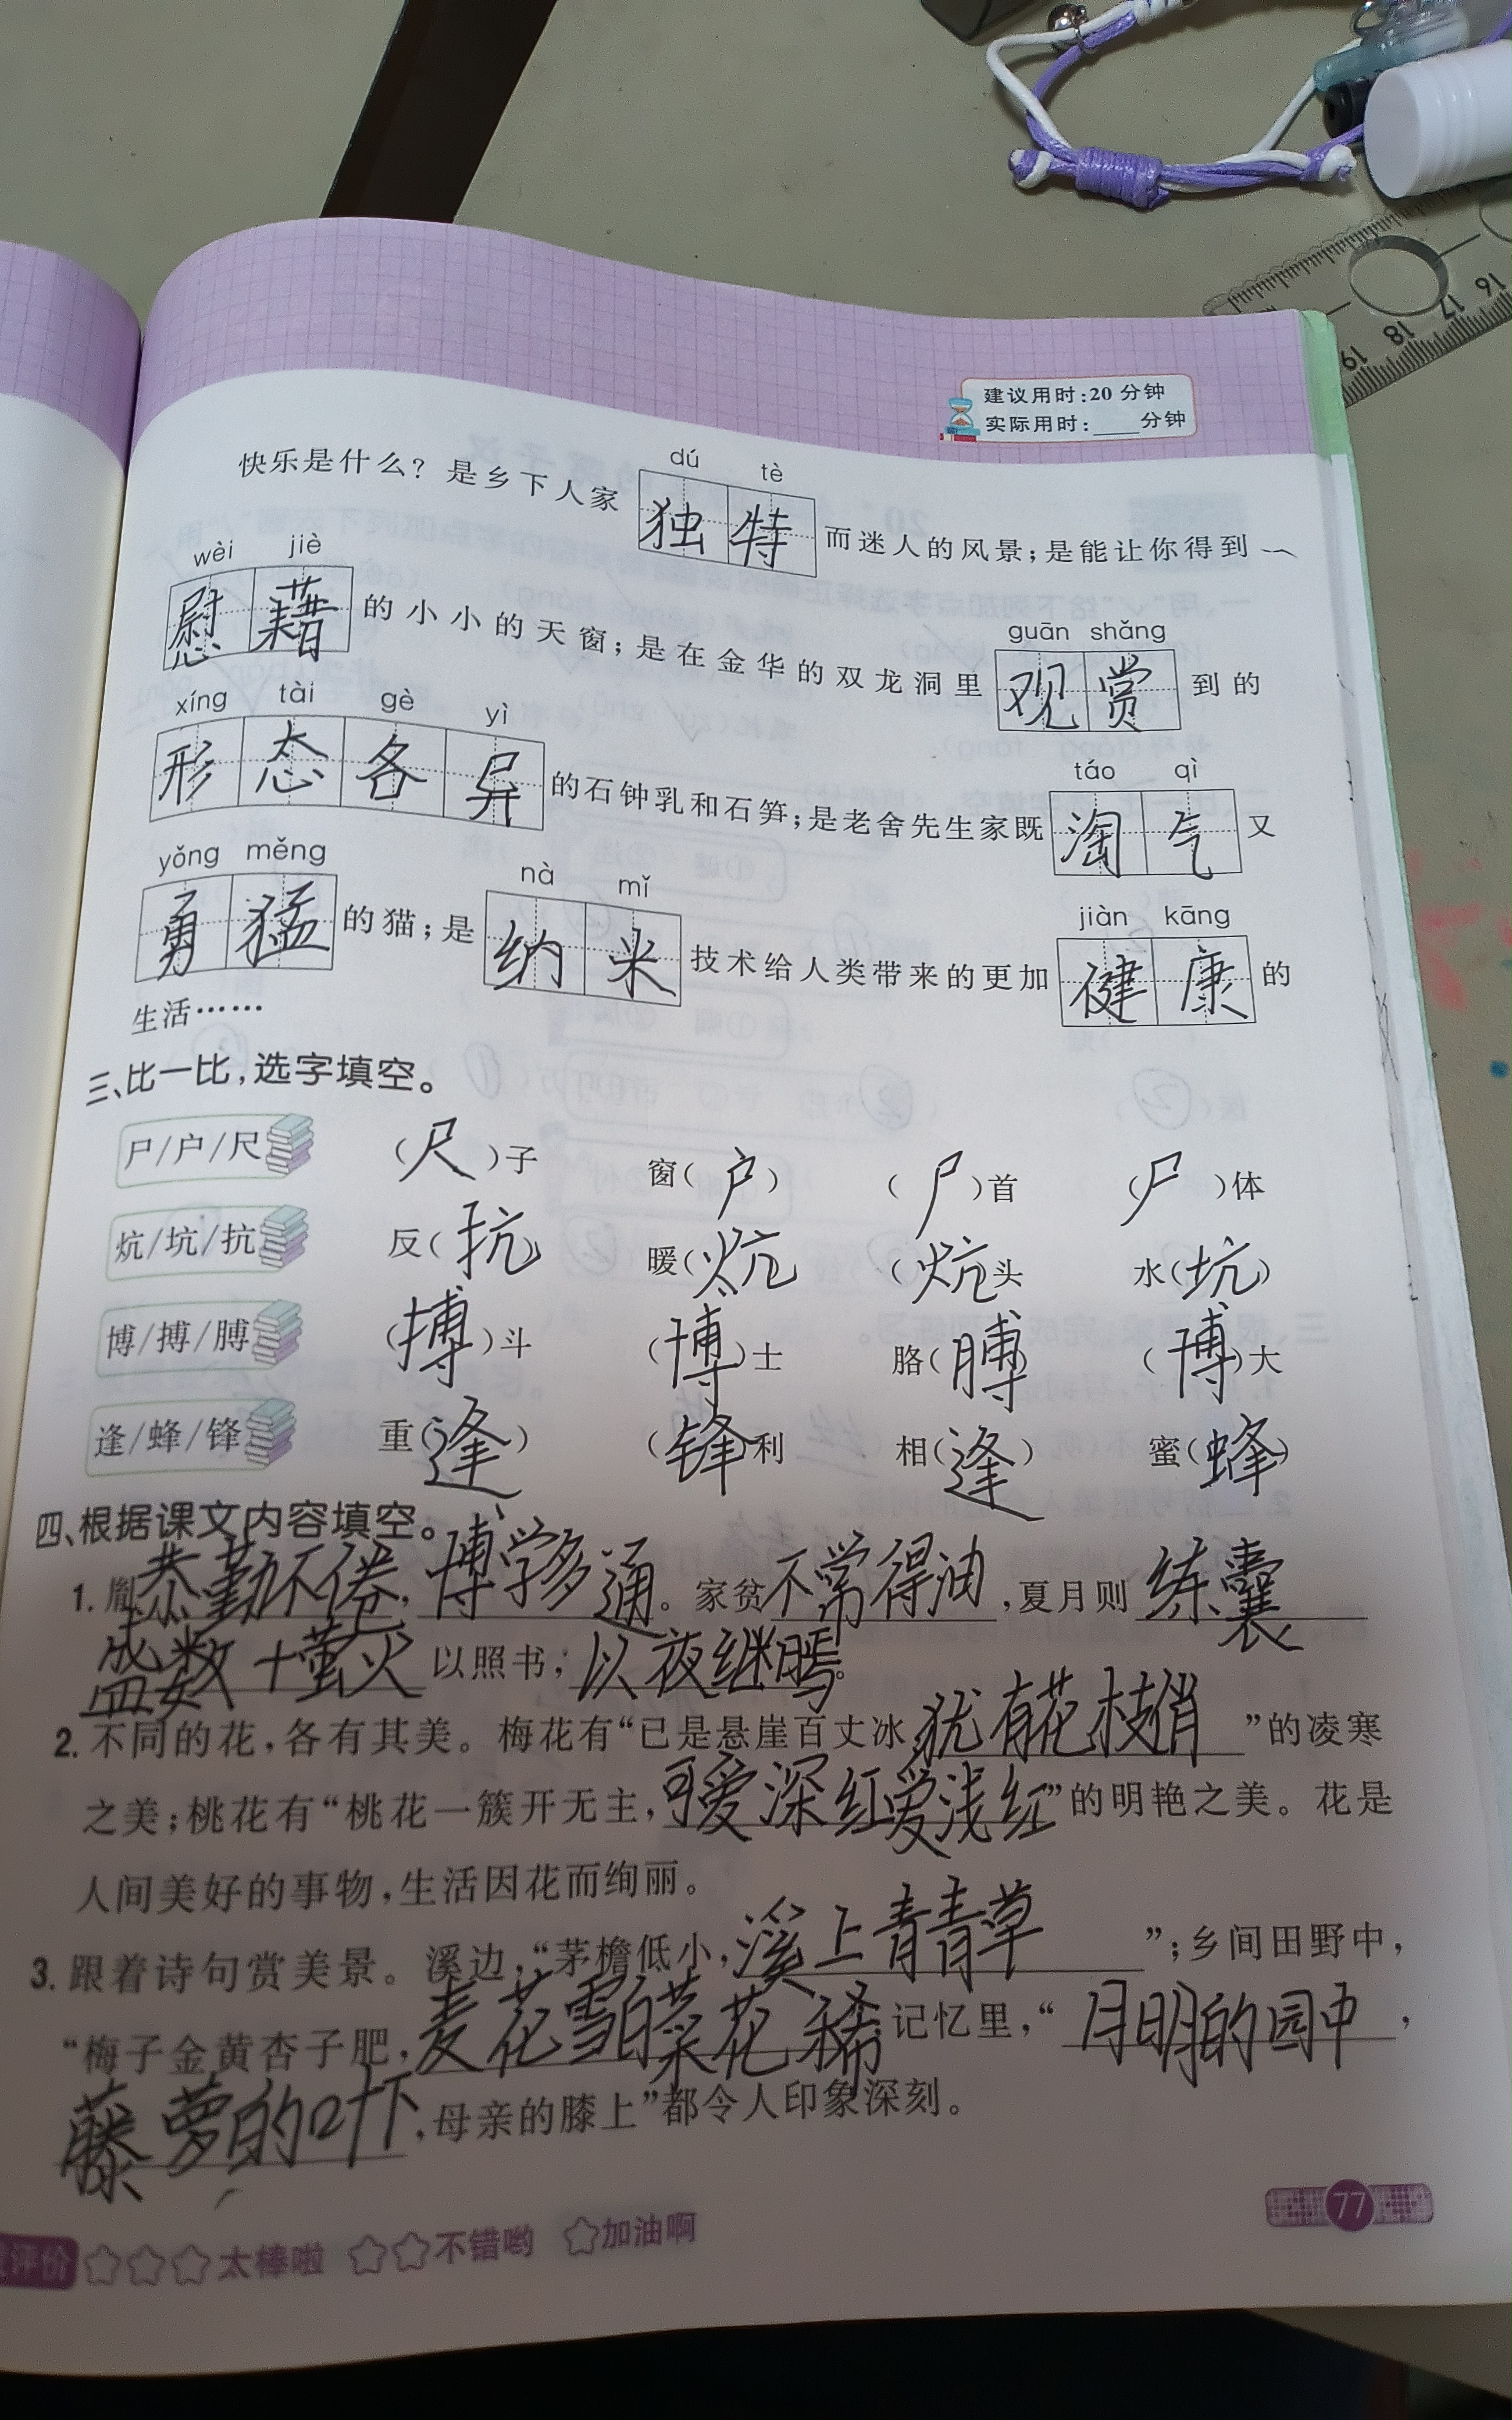 建议用时:20分钟
实际用时:____分钟
dú tè
快乐是什么?是乡下人家独特而迷人的风景;是能让你得到
wèi jiè
慰藉的小小的天窗;是在金华的双龙洞里观赏到的
guān shǎng
xíng tài gè yì
形态各异的石钟乳和石笋;是老舍先生家既淘气又
táo qì
yǒng měng nà mǐ
勇猛的猫;是纳米技术给人类带来的更加健康的
jiàn kāng
生活……
三、比一比,选字填空。
尸/户/尺 (尺)子 窗(户) (尸)首 (尸)体
炕/坑/抗 反(抗) 暖(炕) (炕)头 水(坑)
博/搏/膊 (搏)斗 (博)士 胳(膊) (博)大
逢/蜂/锋 重(逢) (锋)利 相(逢) 蜜(蜂)
四、根据课文内容填空。
1. 胤恭勤不倦,博学多通。家贫不常得油,夏月则练囊
盛数十萤火以照书,以夜继焉。
2. 不同的花,各有其美。梅花有“已是悬崖百丈冰,犹有花枝俏”的凌寒
之美;桃花有“桃花一簇开无主,可爱深红爱浅红”的明艳之美。花是
人间美好的事物,生活因花而绚丽。
3. 跟着诗句赏美景。溪边,“茅檐低小,溪上青青草”;乡间田野中,
“梅子金黄杏子肥,麦花雪白菜花稀记忆里,“月明的园中,
藤萝的叶下,母亲的膝上”都令人印象深刻。
77
评价 ☆☆☆太棒啦 ☆☆不错哟 ☆加油啊
16 17 18 19